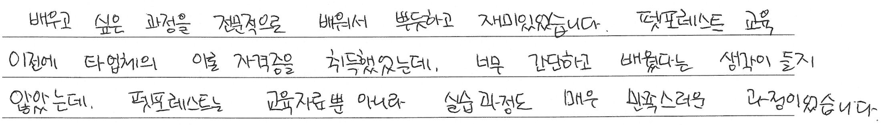 배우고 싶은 과정을 전문적으로 배워서 뿌듯하고 재미있었습니다. 펫포레스트 교육
이전에 타업체의 이론 자격증을 취득했었는데, 너무 간단하고 배웠다는 생각이 들지
않았는데, 펫포레스트는 교육자료뿐 아니라 실습과정도 매우 만족스러운 과정이었습니다.